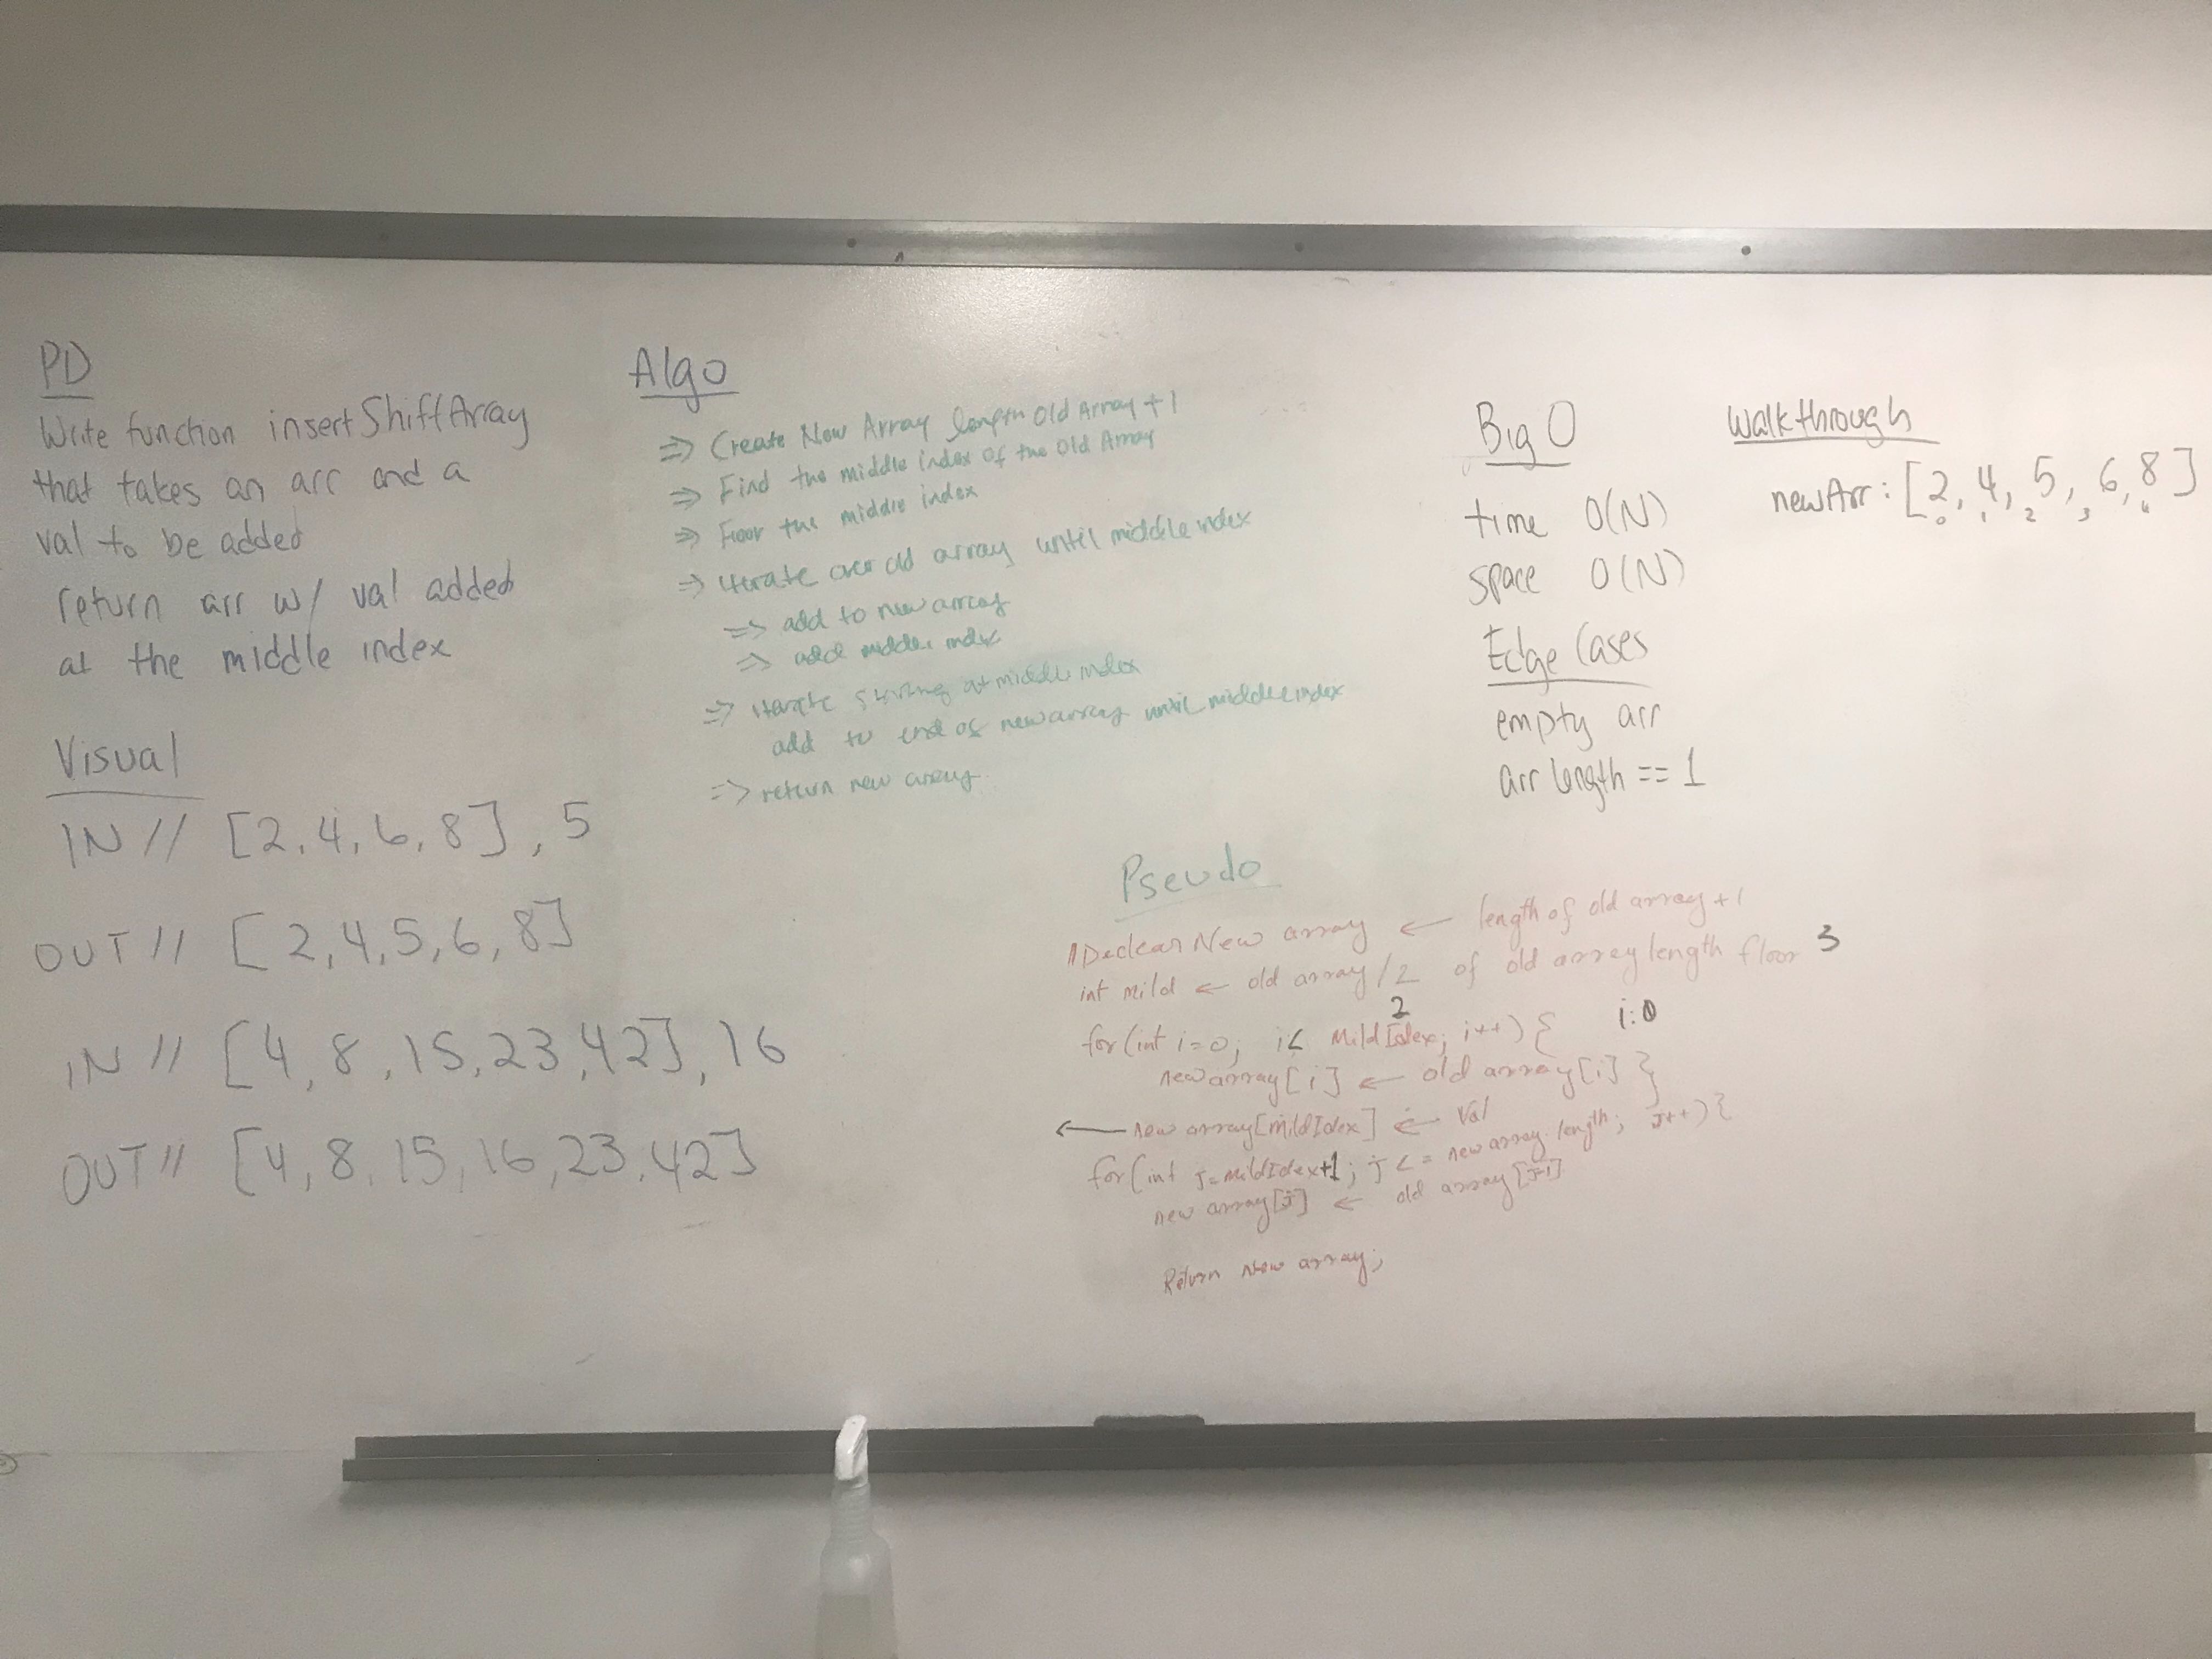 PD
Write function insertShiftArray
that takes an arr and a
val to be added
return arr w/ val added
at the middle index
Visual
IN // [2,4,6,8], 5
OUT // [2,4,5,6,8]
IN // [4,8,15,23,42], 16
OUT // [4,8,15,16,23,42]
Algo
=> Create New Array length Old Array + 1
=> Find the middle index of the Old Array
=> Floor the middle index
=> iterate over old array until middle index
=> add to new array
=> add middle index
=> iterate starting at middle index
add to end of new array until middle index
=> return new array
Big O
time O(N)
space O(N)
Edge Cases
empty arr
arr length == 1
Walkthrough
newArr: [2, 4, 5, 6, 8]
0 1 2 3 4
Pseudo
Declear New array ← length of old array + 1
int mild ← old array / 2 of old array length floor 3
2 i:0
for (int i=0; i< MildIdex; i++) {
new array[i] ← old array[i] }
← new array[mildIdex] ← Val
for (int j=mildIdex+1; j <= new array.length; j++) {
new array[j] ← old array[j-1]
Return New array;